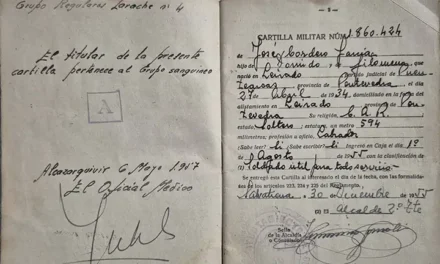 Grupo Regulares Larache nº 4
El titular de la presente
cartilla pertenece al Grupo sanguineo
A
Alcazarquivir 6 Mayo 1.957
El Oficial Medico
— 3 —
CARTILLA MILITAR NÚM. 1.860.424
de José Cordero
hijo de y de Filomena
nació en Leirado, Partido Judicial de
provincia de Pontevedra el
27 de Abril de 1934, domiciliado en la fecha del
alistamiento en Leirado, provincia de Pon-
tevedra Su religión C. A. R.
estado soltero, estatura, un metro 594
milímetros; profesión u oficio,
¿Sabe leer? si ¿Sabe escribir? si Ingresó en Caja el 1º
de Agosto de 1955 con la clasificación de
soldado útil para todo servicio
Se entregó esta Cartilla al interesado el día de la fecha, con las formalida-
des de los artículos 223, 224 y 225 del Reglamento.
Salvatierra, 30 de de 1955
El Alcalde 2º Tte
Sello
de la Alcaldía
o Consulado